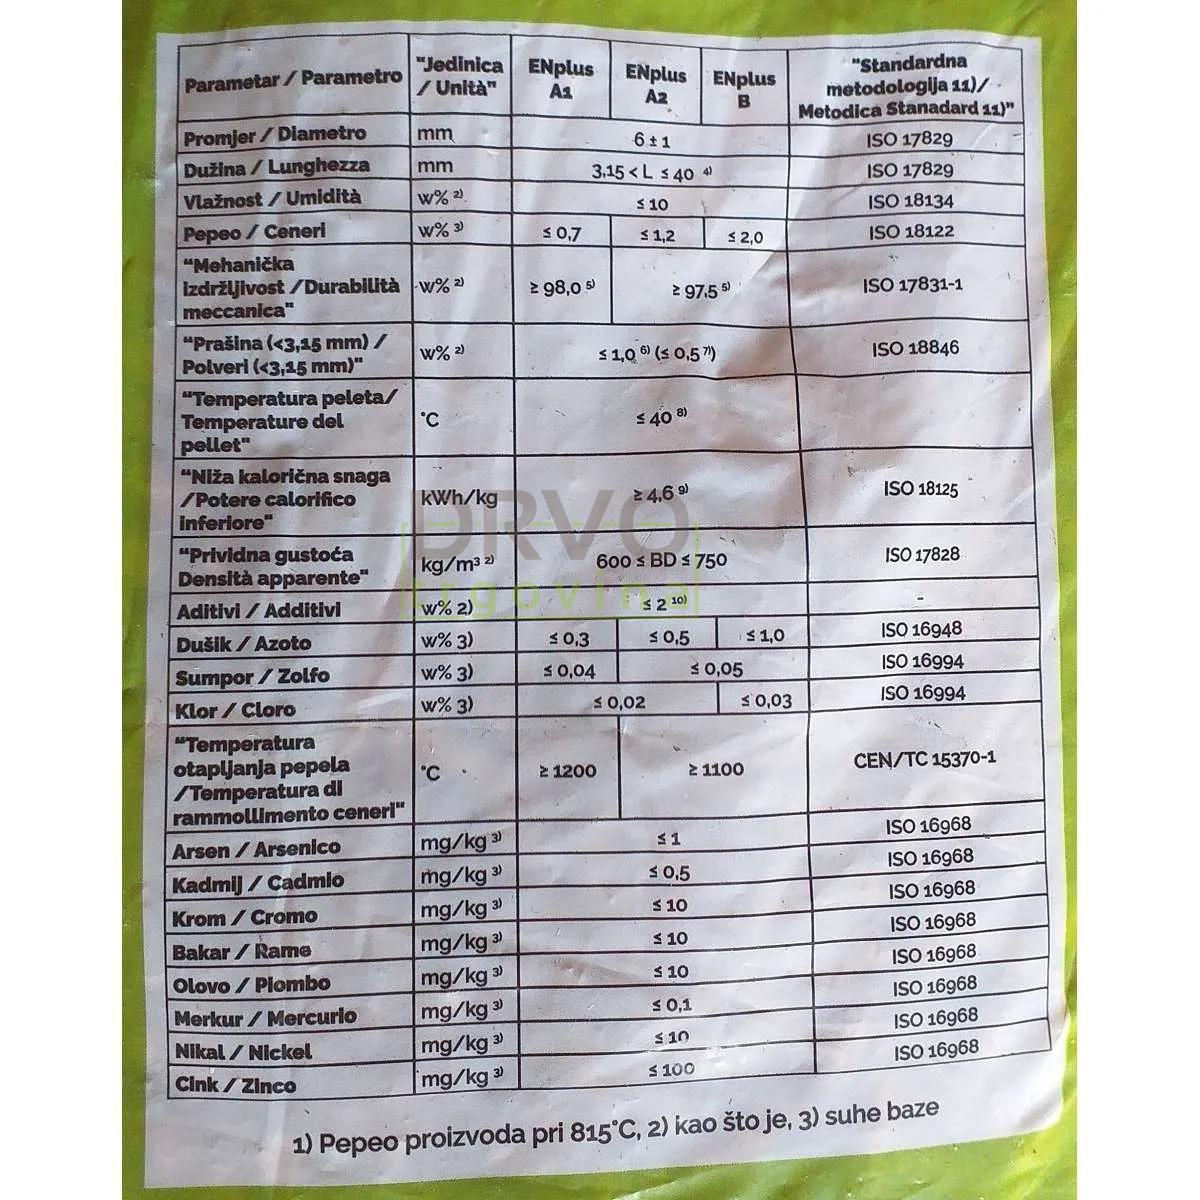 Parametar / Parametro "Jedinica / Unità" ENplus A1 ENplus A2 ENplus B "Standardna metodologija 11)/ Metodica Stanadard 11)"
Promjer / Diametro mm 6 ± 1 ISO 17829
Dužina / Lunghezza mm 3,15 < L ≤ 40 4) ISO 17829
Vlažnost / Umidità w% 2) ≤ 10 ISO 18134
Pepeo / Ceneri w% 3) ≤ 0,7 ≤ 1,2 ≤ 2,0 ISO 18122
"Mehanička
izdržljivost /Durabilità w% 2) ≥ 98,0 5) ≥ 97,5 5) ISO 17831-1
meccanica"
"Prašina (<3,15 mm) /
Polveri (<3,15 mm)" w% 2) ≤ 1,0 6) (≤ 0,5 7)) ISO 18846
"Temperatura peleta/
Temperature del °C ≤ 40 8)
pellet"
"Niža kalorična snaga
/Potere calorifico kWh/kg ≥ 4,6 9) ISO 18125
inferiore"
"Prividna gustoća
Densità apparente" kg/m³ 2) 600 ≤ BD ≤ 750 ISO 17828
Aditivi / Additivi w% 2) ≤ 2 10) -
Dušik / Azoto w% 3) ≤ 0,3 ≤ 0,5 ≤ 1,0 ISO 16948
Sumpor / Zolfo w% 3) ≤ 0,04 ≤ 0,05 ISO 16994
Klor / Cloro w% 3) ≤ 0,02 ≤ 0,03 ISO 16994
"Temperatura
otapljanja pepela °C ≥ 1200 ≥ 1100 CEN/TC 15370-1
/Temperatura di
rammollimento ceneri"
Arsen / Arsenico mg/kg 3) ≤ 1 ISO 16968
Kadmij / Cadmio mg/kg 3) ≤ 0,5 ISO 16968
Krom / Cromo mg/kg 3) ≤ 10 ISO 16968
Bakar / Rame mg/kg 3) ≤ 10 ISO 16968
Olovo / Piombo mg/kg 3) ≤ 10 ISO 16968
Merkur / Mercurio mg/kg 3) ≤ 0,1 ISO 16968
Nikal / Nickel mg/kg 3) ≤ 10 ISO 16968
Cink / Zinco mg/kg 3) ≤ 100 ISO 16968
1) Pepeo proizvoda pri 815°C, 2) kao što je, 3) suhe baze
DRVO
trgovina